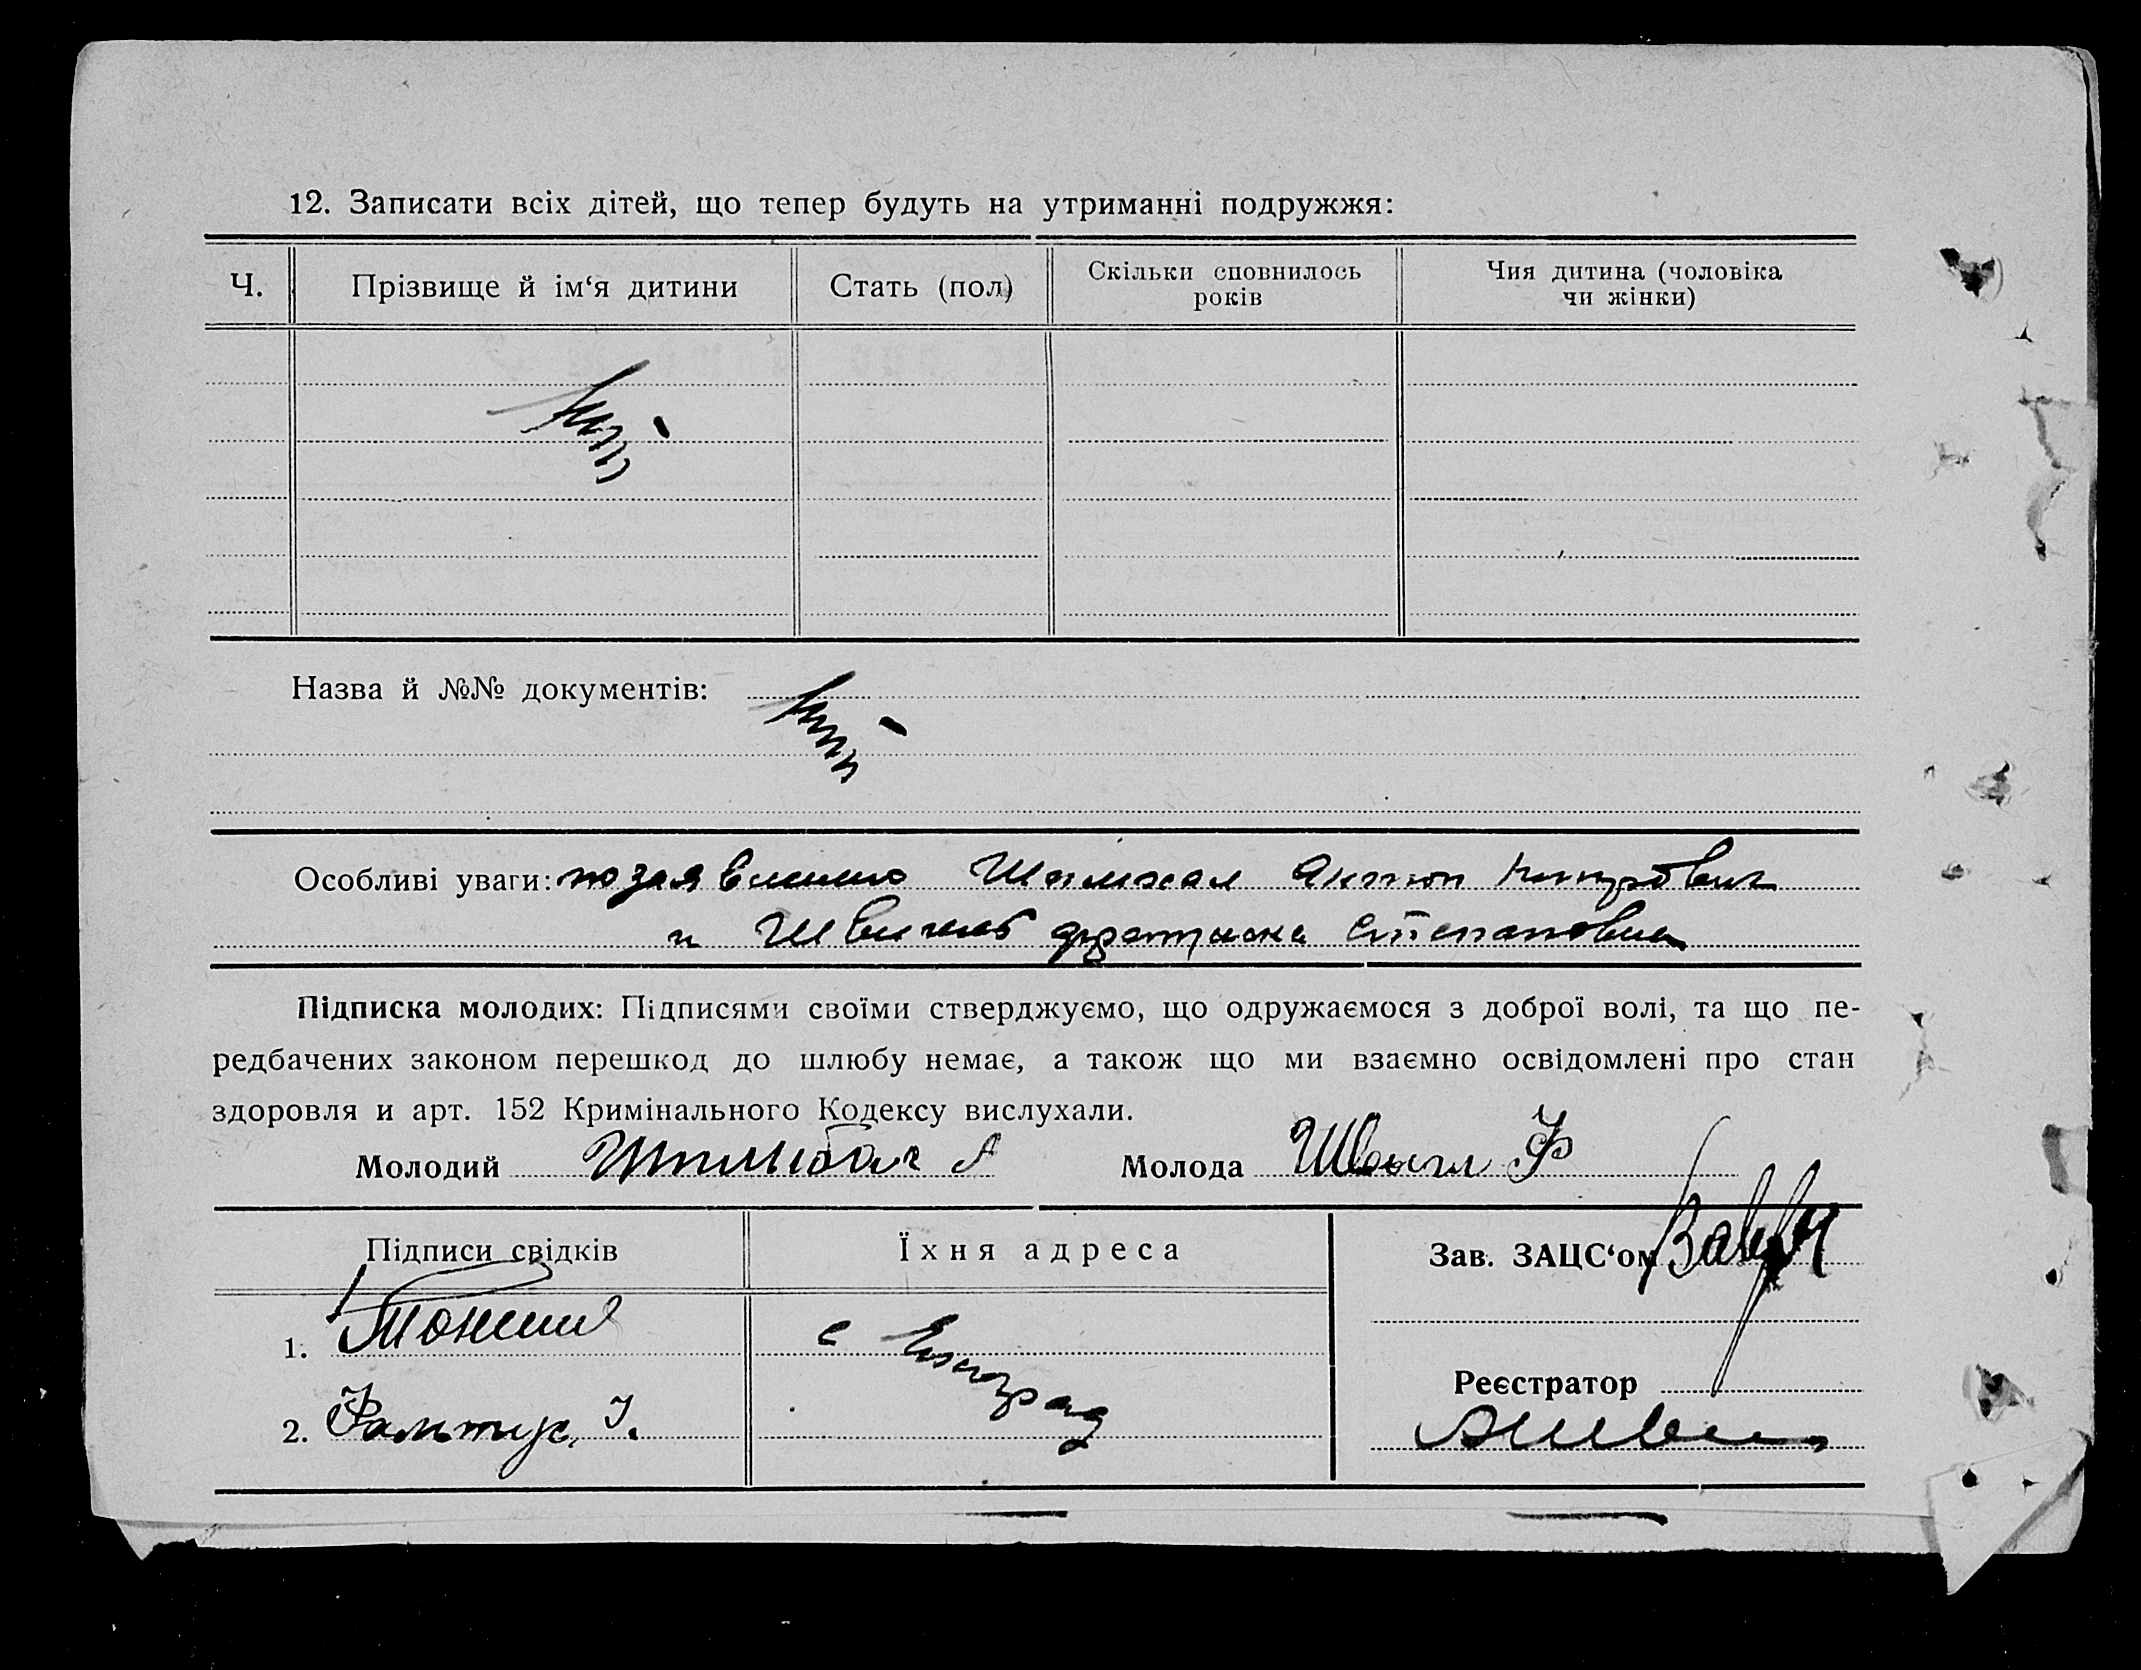 12. Записати всіх дітей, що тепер будуть на утриманні подружжя:
Ч.
Прізвище й ім‘я дитини
Стать (пол)
Скільки сповнилось
років
Чия дитина (чоловіка
чи жінки)
Назва й №№ документів:
Особливі уваги: по заявлению Антон
и Степановна
Підписка молодих: Підписями своїми стверджуємо, що одружаємося з доброї волі, та що пе-
редбачених законом перешкод до шлюбу немає, а також що ми взаємно освідомлені про стан
здоровля и арт. 152 Кримінального Кодексу вислухали.
Молодий
Молода Ф
Підписи свідків
Їхня адреса
Зав. ЗАЦС‘ом
1.
с
Реєстратор
2. Фальтус І.